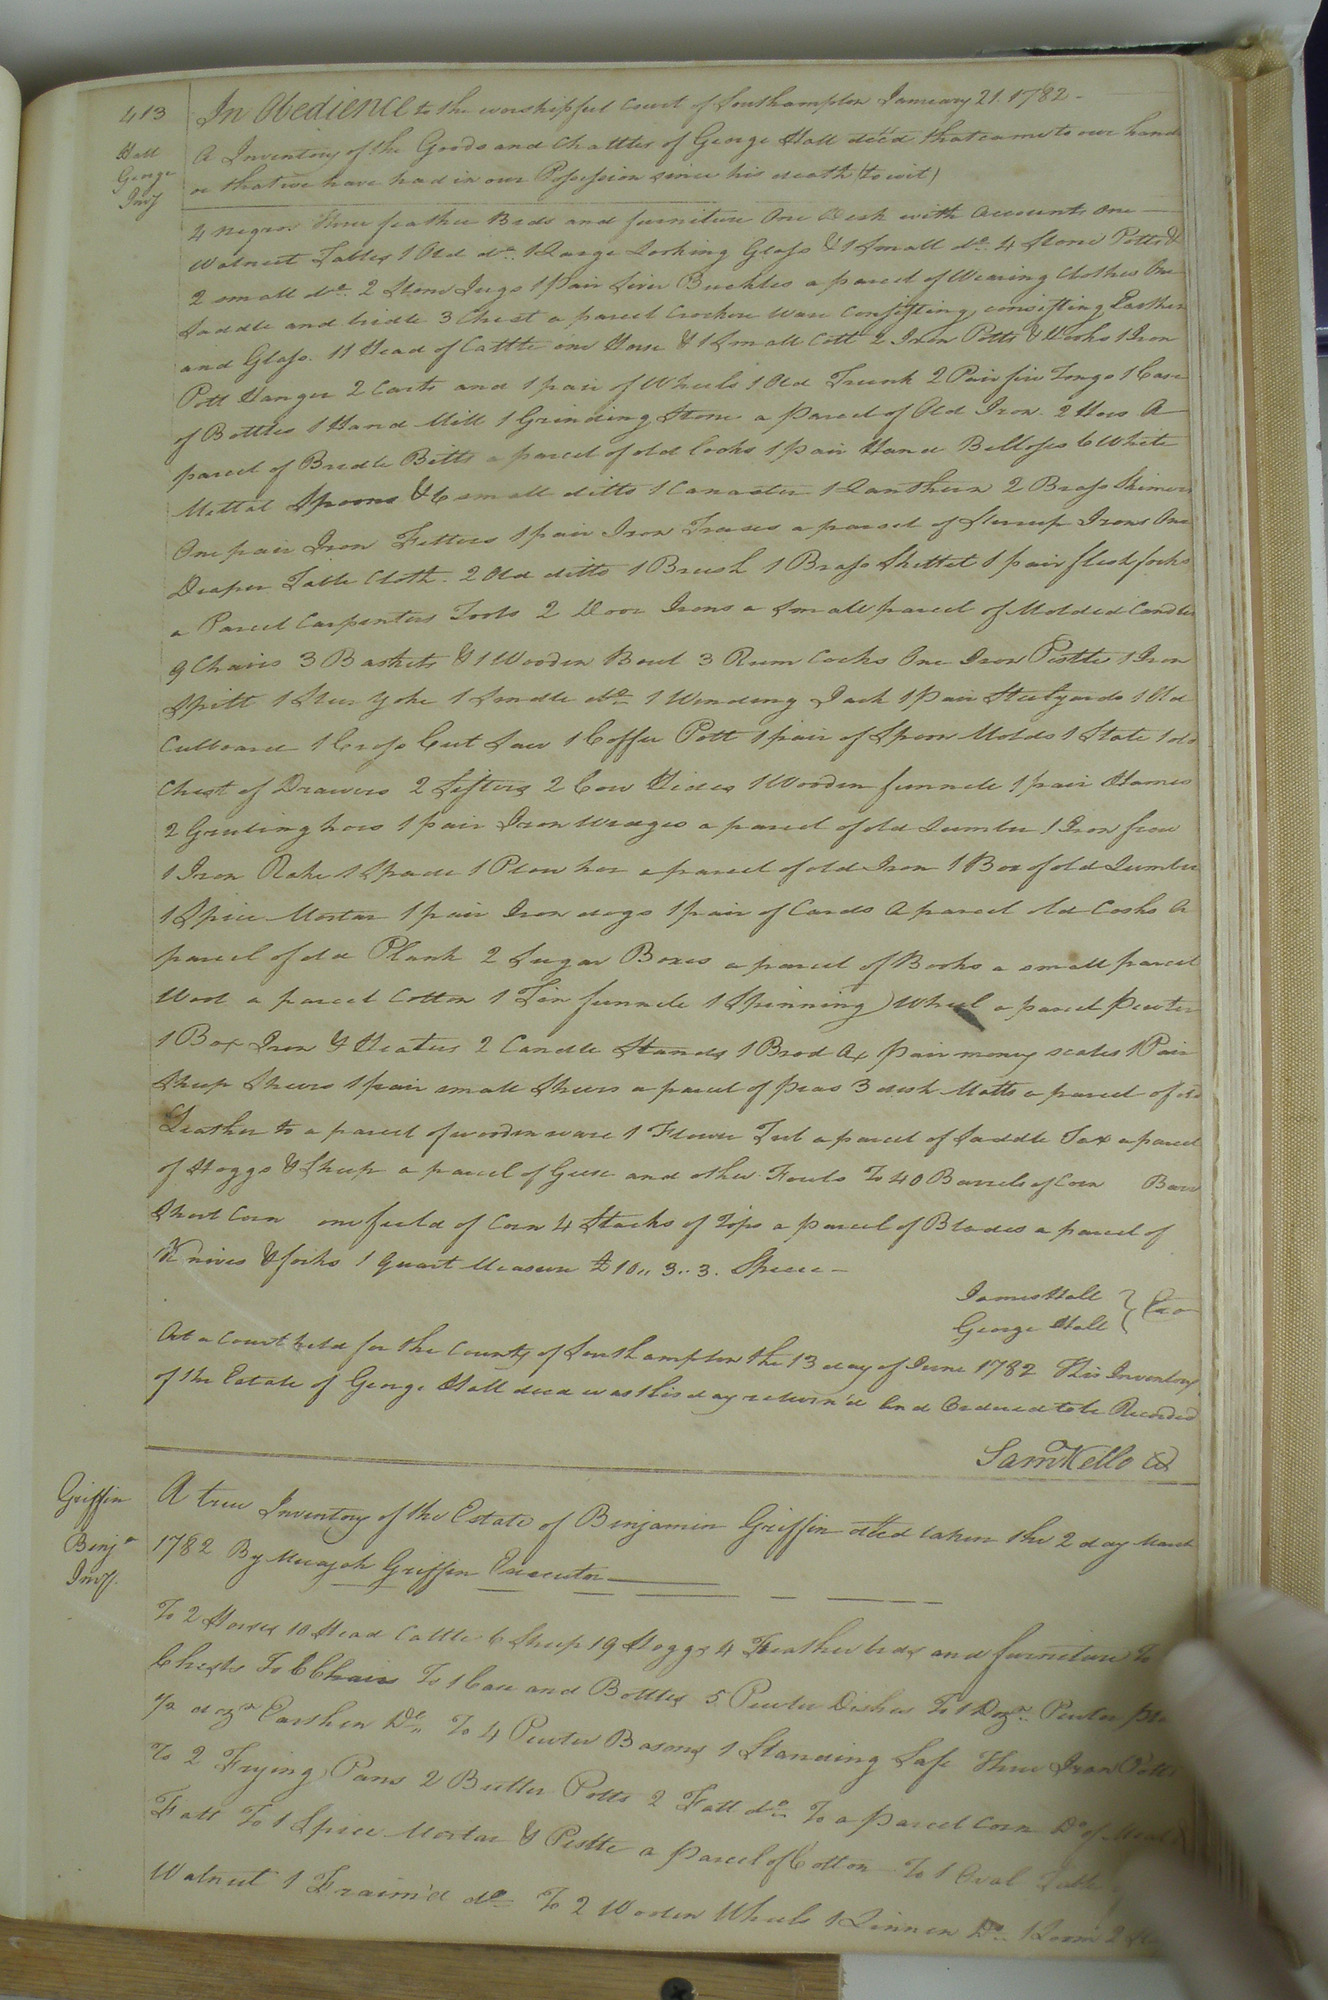 413
Hall
George
Invy
In Obedience to the worshipful court of Southampton January 21. 1782 -
A Inventory of the Goods and Chattles of George Hall decd that came to our hands
or that we have had in our Possession since his death (to wit)
4 negros three feather Beds and furniture One Desk with accounts One
Walnut Table 1 Old do. 1 Large Looking Glass & 1 Small do. 4 Stone Potts &
2 small do. 2 Stone Jugs 1 pair Buckles a parcel of Wearing Clothes One
Saddle and bridle 3 Chest a parcel Ware Consisting, consisting Earthen
and Glass. 11 Head of Cattle one Horse & 1 Small Colt 2 Iron Potts & Hooks 1 Iron
Pott Hanger 2 Carts and 1 pair of Wheels 1 Old Trunk 2 Pair fire Tongs 1 Case
of Bottles 1 Hand Mill 1 Grinding Stone a parcel of Old Iron. 2 Hoes A
parcel of Bredle Bitts a parcel of old locks 1 pair Hand Belloses 6 White
Mettal Spoons & 6 small ditto 1 Canaster 1 Lanthern 2 Brass Skimers
One pair Iron Fetters 1 pair Iron Traces a parcel of Sterrup Irons One
Deaper Table Cloth. 2 Old ditto 1 Brush 1 Brass Skettel 1 pair flesh forks
a Parcel Carpenters Tools 2 Door Irons a small parcel of Molded Candles
9 Chairs 3 Baskets & 1 Wooden Bowl 3 Rum Cocks One Iron Pestle 1 Iron
Spitt 1 Steer Yoke 1 do 1 Winding Jack 1 pair Steelyards 1 Old
Cubboard 1 Cross Cut Saw 1 Coffee Pott 1 pair of Spoon Molds 1 Slate 1 old
Chest of Drawers 2 Sifters 2 Cow Hides 1 Wooden funnele 1 pair Hames
2 Grubing hoes 1 pair Iron Wedges a parcel of old Lumber 1 Iron frow
1 Iron Rake 1 Spade 1 Plow hoe a parcel of old Iron 1 Box of old Lumber
1 Spice Mortar 1 pair Iron dogs 1 pair of Cards A parcel old Casks A
parcel of old Plank 2 Sugar Boxes a parcel of Books a small parcel
Wool a parcel Cotton 1 Tin funnele 1 Spinning Wheel a parcel Pewter
1 Box Iron & Heaters 2 Candle Stands 1 Brod Ax pair money scales 1 Pair
Sheep Shears 1 pair small Sheers a parcel of peas 3 dish Matts a parcel of
Leather to a parcel of wooden ware 1 Flower Tub a parcel of Saddle a parcel
of Hoggs & Sheep a parcel of Geese and other Fowls To 40 Barrels of Corn Barr
Short Corn one field of Corn 4 Stacks of Tops a parcel of Blades a parcel of
Knives & forks 1 Quart Measure £10,, 3,, 3. Specie -
James Hall
George Hall } Exo
At a Court held for the County of Southampton the 13 day of June 1782 This Inventory
of the Estate of George Hall decd was this day return'd and Ordered to be Recorded
Sam Kello
Griffin
Benja
Invy.
A true Inventory of the Estate of Benjamin Griffin decd taken the 2 day March
1782 By Micajah Griffin Executor
To 2 Horses 10 Head Cattle 6 Sheep 19 Hoggs 4 Feather beds and furniture To
Chests To 6 Chairs To 1 Case and Bottles 5 Pewter Dishes To 1 Dozn. Pewter
1/2 dozn Earthen Do. To 4 Pewter Basons 1 Standing Safe three Iron Potts
To 2 Frying Pans 2 Butter Potts 2 Fatt do. To a parcel Corn Do of Meat
Fatt To 1 Spice Mortar & Pestle a parcel of Cotton To 1 Oval Table
Walnut 1 Fraim'd do To 2 Wooden Wheels 1 Linnen Do. 1 Loom 2